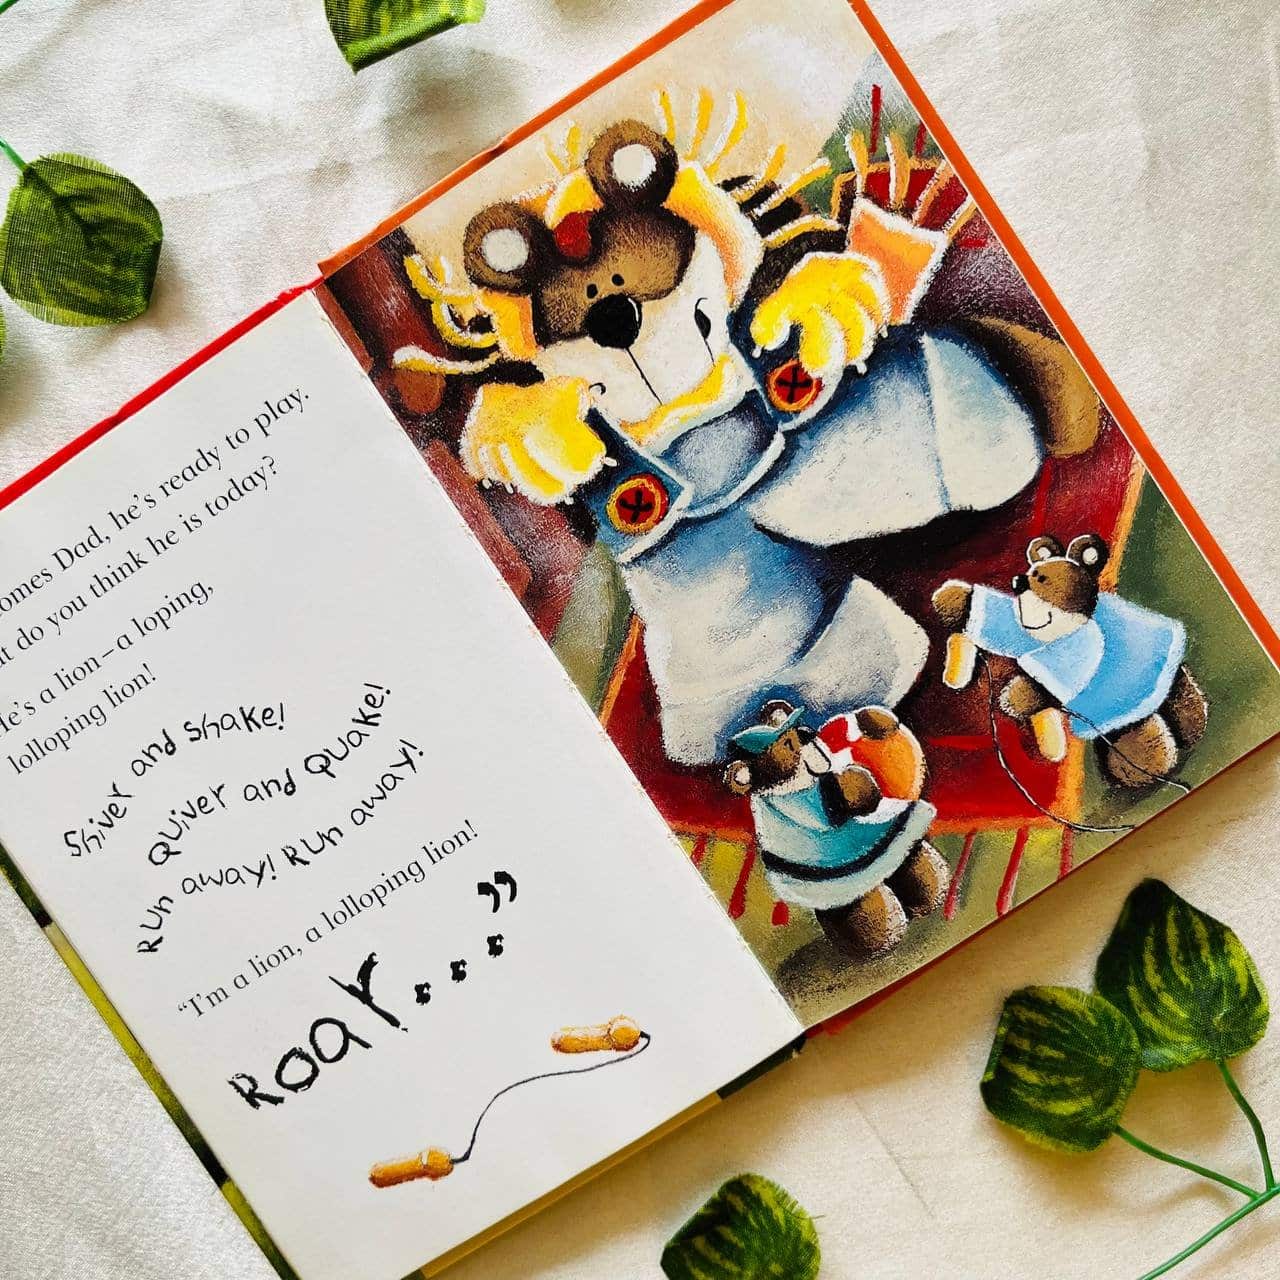 omes Dad, he's ready to play.
t do you think he is today?
He's a lion – a loping,
lolloping lion!
Shiver and shake!
Quiver and Quake!
Run away! Run away!
"I'm a lion, a lolloping lion!
Roar..."